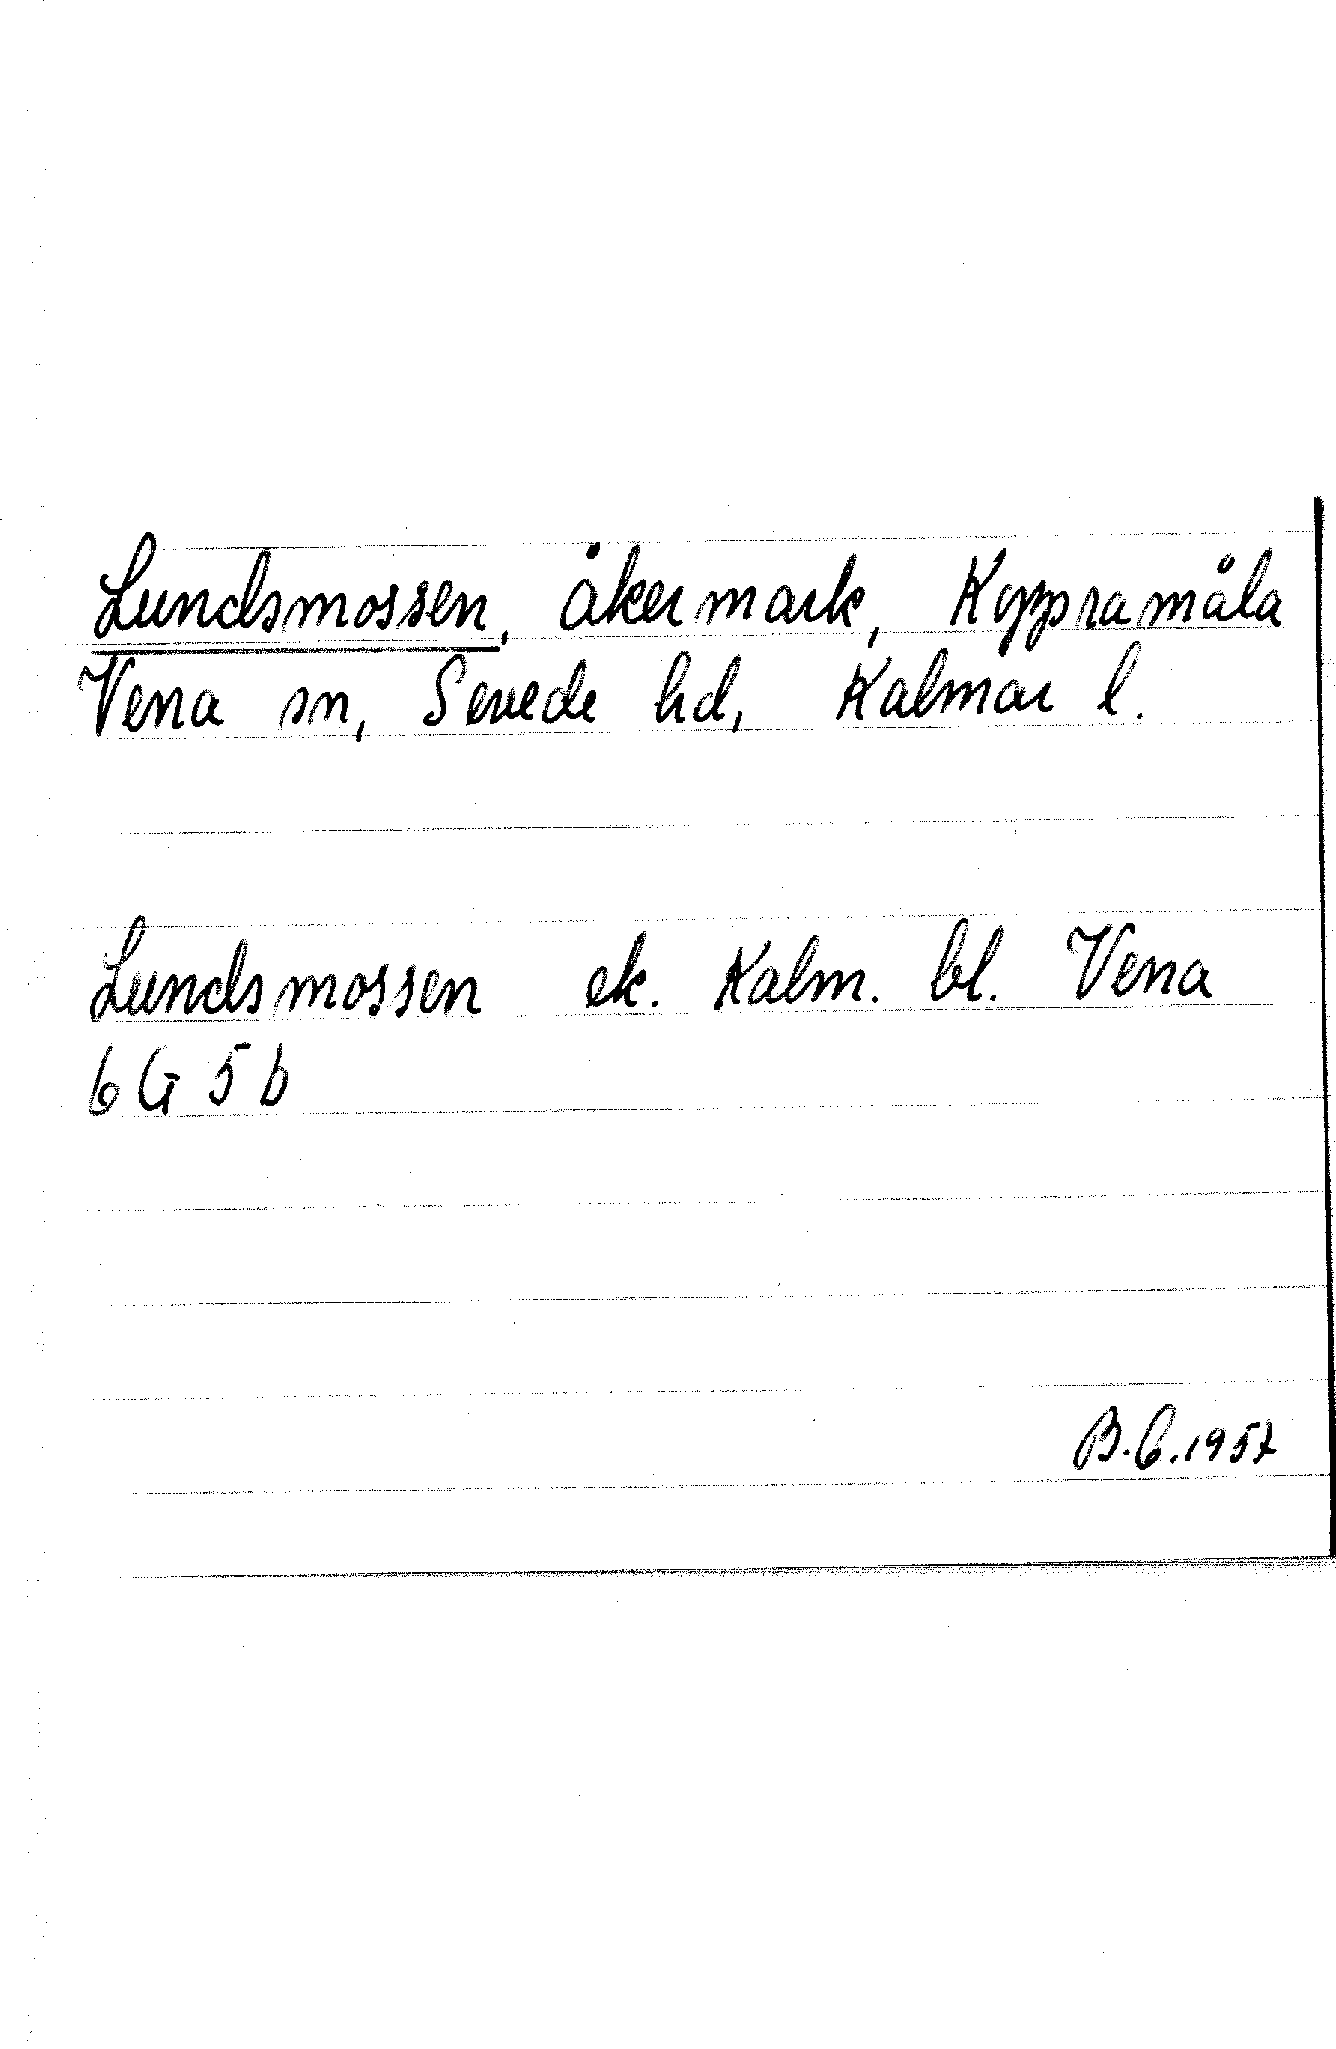 Lundsmossen, åkermark, Koppramåla
Vena sn, Sevede hd, Kalmar l.
Lundsmossen ek. Kalm. bl. Vena
6 G 5 b
B.C.1957